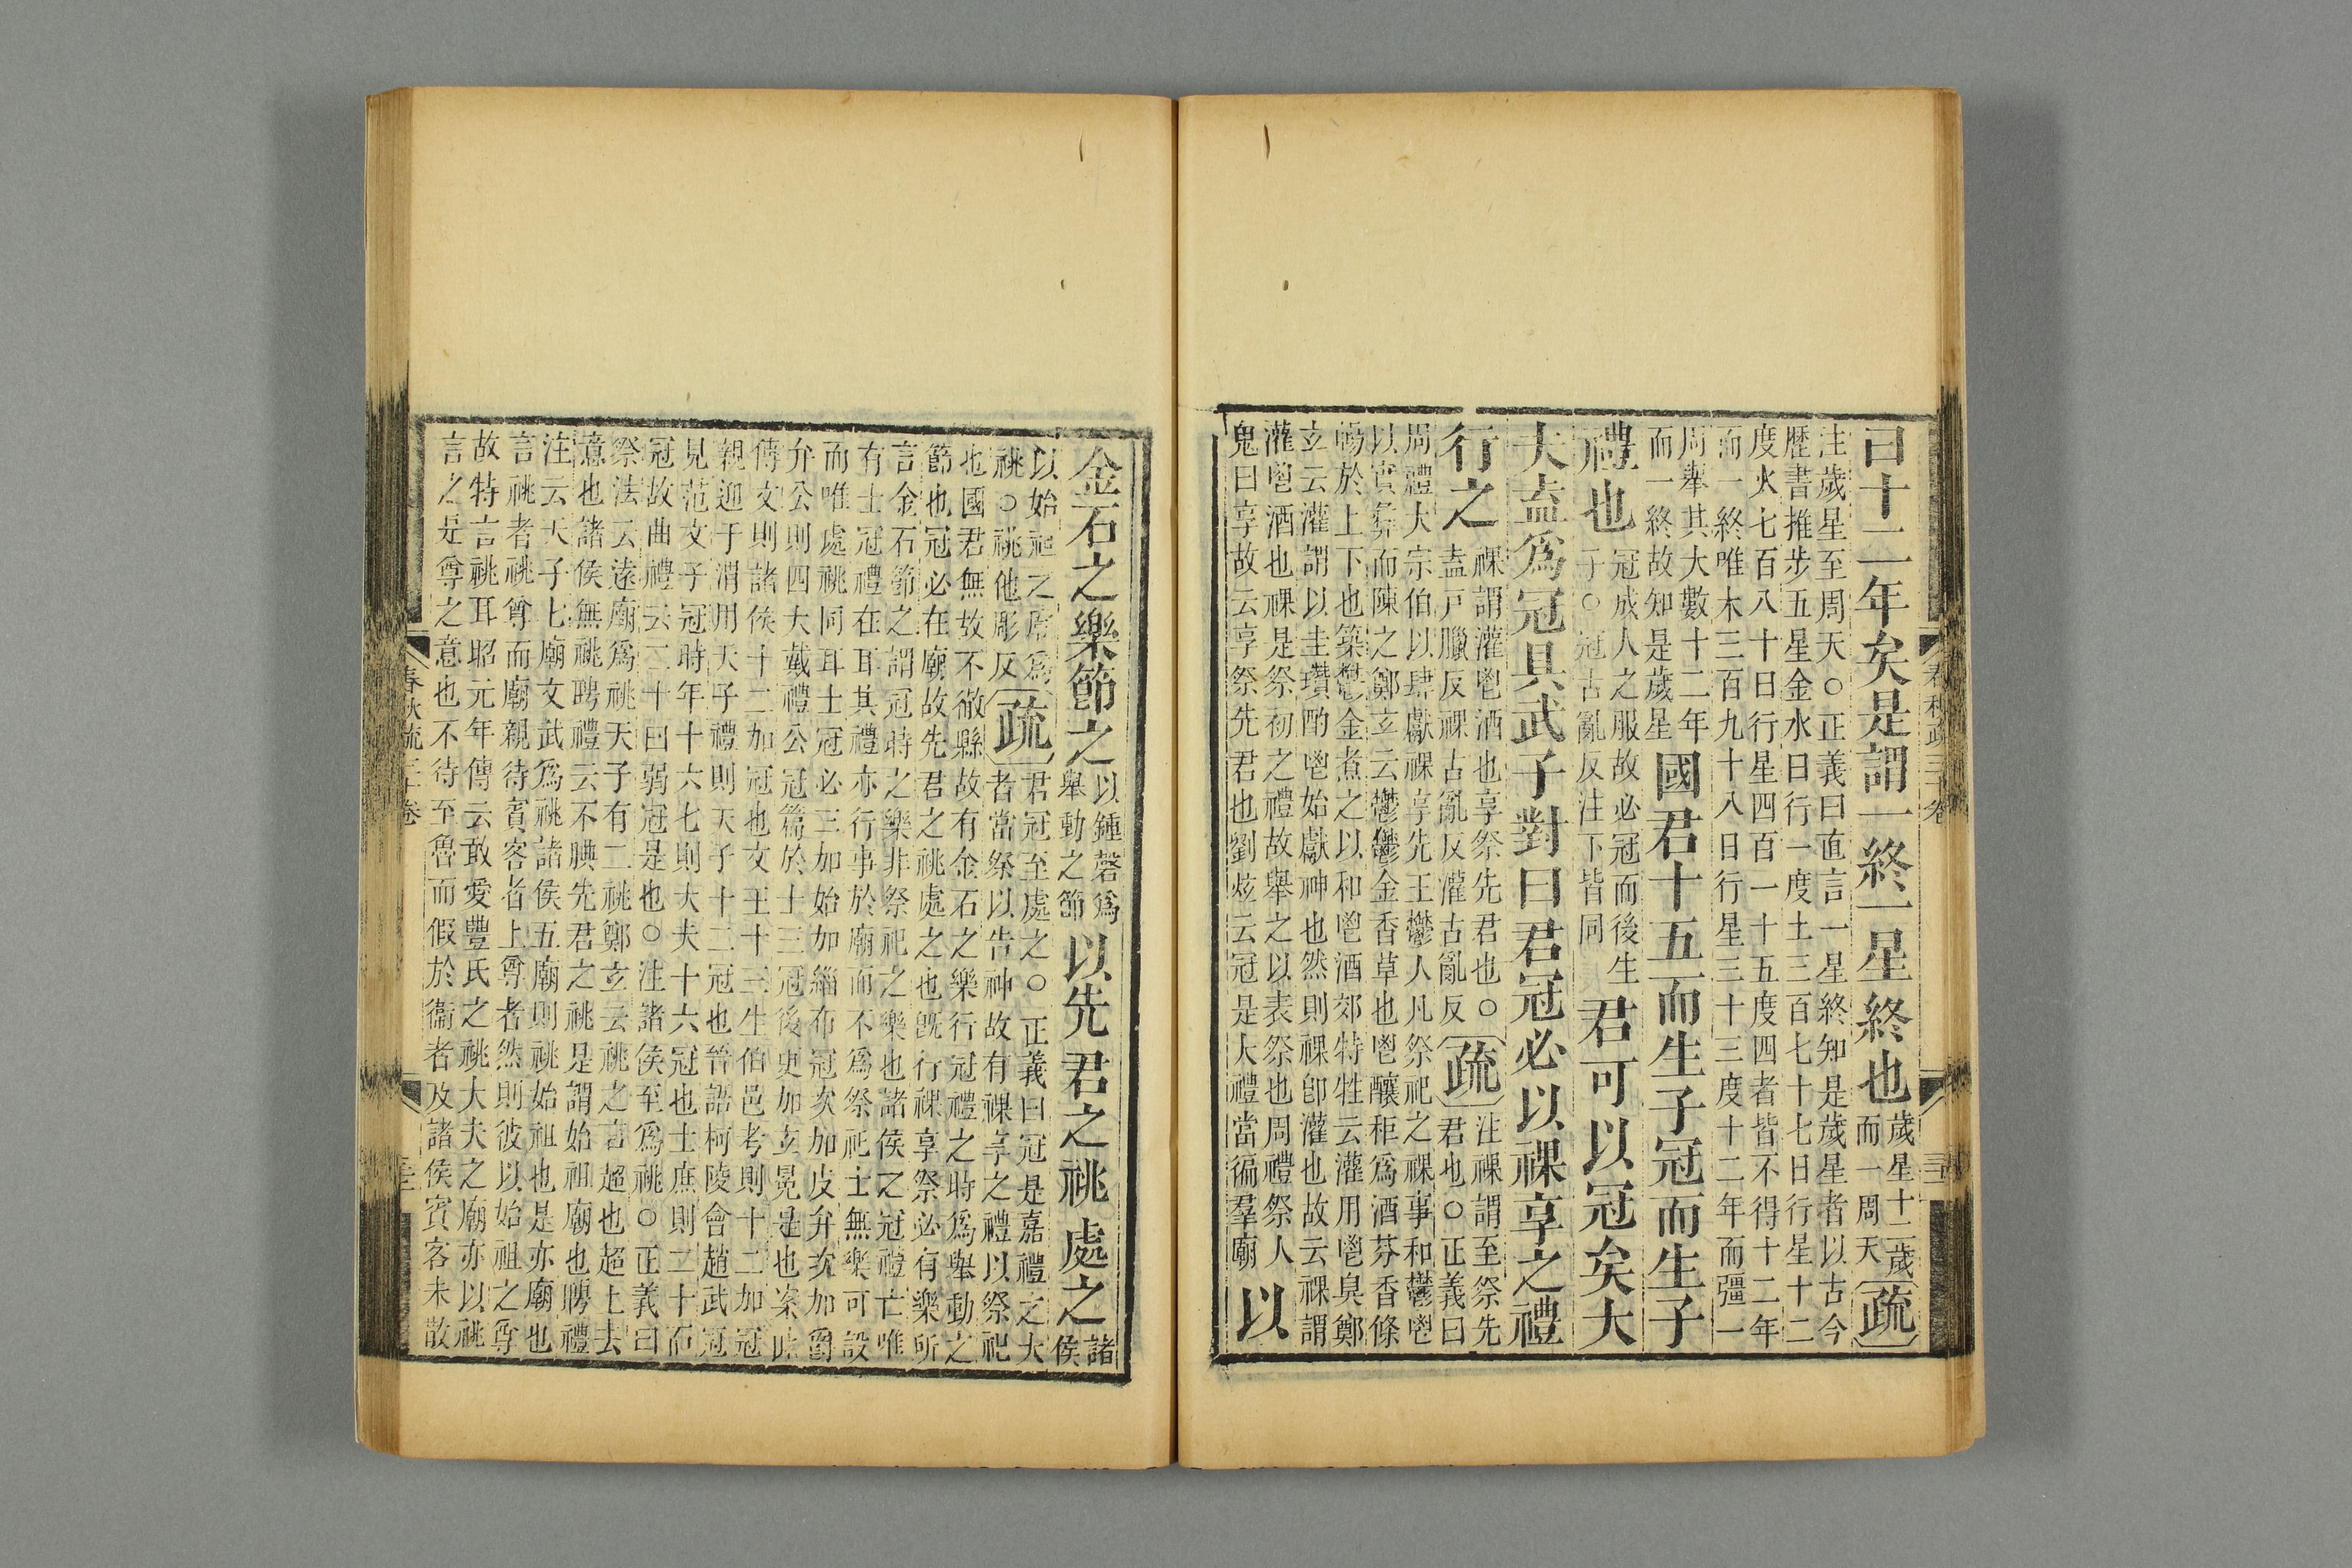 曰十二年矣是謂一終一星終也歲星十二歲而一周天疏
注歲星至周天○正義曰直言一星終知是歲星者以古今
歷書推步五星金水日行一度土三百七十七日行星十二
度火七百八十日行星四百一十五度四者皆不得十二年
而一終唯木三百九十八日行星三十三度十二年而彊一
周舉其大數十二年
而一終故知是歲星
國君十五而生子冠而生子
禮也冠成人之服故必冠而後生
子○冠古亂反注下皆同
君可以冠矣大
夫盍爲冠具武子對曰君冠必以祼享之禮
行之祼謂灌鬯酒也享祭先君也○
盍戸臘反祼古亂反灌古亂反
疏注祼謂至祭先
君也○正義曰
周禮大宗伯以肆獻祼享先王鬱人凡祭祀之祼事和鬱鬯
以實彝而陳之鄭玄云鬱鬱金香草也鬯釀秬爲酒芬香條
暢於上下也築鬱金煮之以和鬯酒郊特牲云灌用鬯臭鄭
玄云灌謂以圭瓚酌鬯始獻神也然則祼卽灌也故云祼謂
灌鬯酒也祼是祭初之禮故舉之以表祭也周禮祭人
鬼曰享故云享祭先君也劉炫云冠是大禮當徧羣廟
以
金石之樂節之以鍾磬爲
舉動之節
以先君之祧處之諸
侯
以始祖之廟爲
祧○祧他彫反
疏君冠至處之○正義曰冠是嘉禮之大
者當祭以告神故有祼享之禮以祭祀
也國君無故不徹縣故有金石之樂行冠禮之時爲舉動之
節也冠必在廟故先君之祧處之也旣行祼享祭必有樂所
言金石節之謂冠時之樂非祭祀之樂也諸侯之冠禮亡唯
有士冠禮在耳其禮亦行事於廟而不爲祭祀士無樂可設
而唯處祧同耳士冠必三加始加緇布冠次加皮弁次加爵
弁公則四大戴禮公冠篇於士三冠後更加玄冕是也案此
傳文則諸侯十二加冠也文王十三生伯邑考則十二加冠
親迎于渭用天子禮則天子十二冠也晉語柯陵會趙武冠
見范文子冠時年十六七則大夫十六冠也士庶則二十而
冠故曲禮云二十曰弱冠是也○注諸侯至爲祧○正義曰
祭法云遠廟爲祧天子有二祧鄭玄云祧之言超也超上去
意也諸侯無祧聘禮云不腆先君之祧是謂始祖廟也聘禮
注云天子七廟文武爲祧諸侯五廟則祧始祖也是亦廟也
言祧者祧尊而廟親待賓客者上尊者然則彼以始祖之尊
故特言祧耳昭元年傳云敢愛豐氏之祧大夫之廟亦以祧
言之是尊之意也不待至魯而假於衞者及諸侯賓客未散
春秋疏三十卷